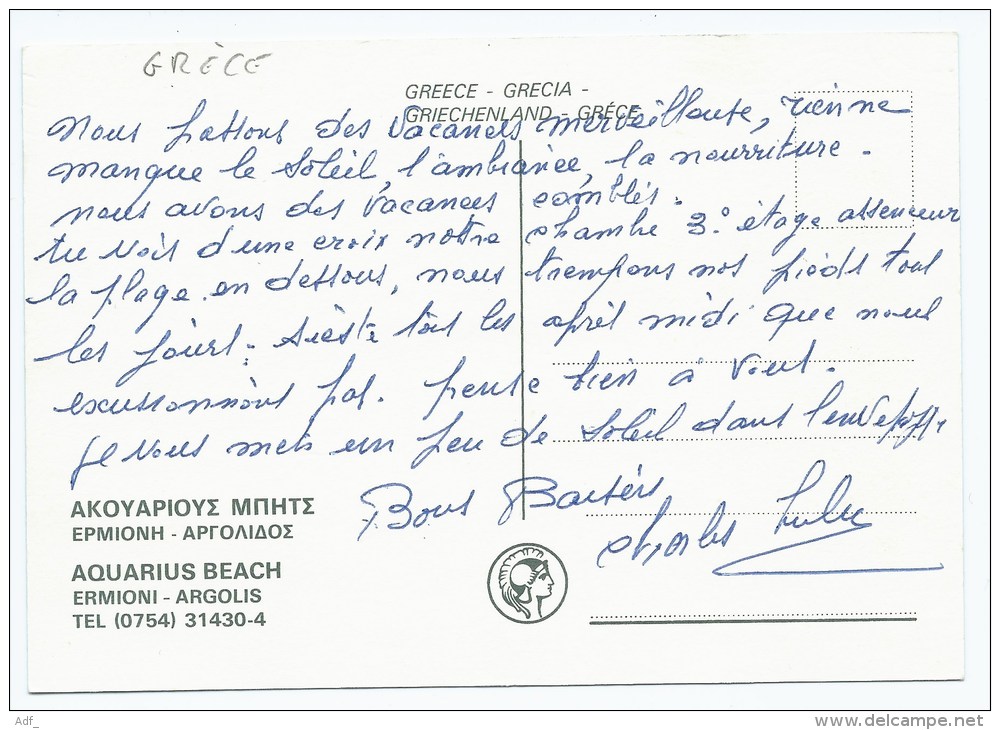 GRÈCE
GREECE - GRECIA -
GRIECHENLAND - GRÉCE
nous passons des vacances merveilleuse, rienne
manque le soleil, l'ambiance, la nourriture -
nous avons des vacances comblés.
tu vois d'une croix nottre chambre 3° étage assenceur
la plage en dessous, nous trempons nos pieds tout
les jours. siéste tous les après midi que nous
excussionnons pas. pense bien à vous.
je vous mets un peu de soleil dans l'enveloppe
Bons Baisers
Charles Lulu
ΑΚΟΥΑΡΙΟΥΣ ΜΠΗΤΣ
ΕΡΜΙΟΝΗ - ΑΡΓΟΛΙΔΟΣ
AQUARIUS BEACH
ERMIONI - ARGOLIS
TEL (0754) 31430-4
Adf_
www.delcampe.net